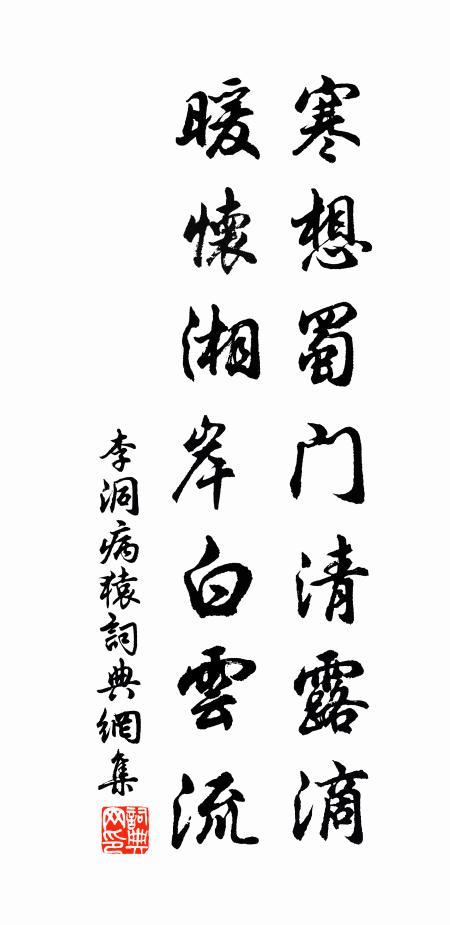 寒想蜀門清露滴
暖懷湘岸白雲流
李洞病猿詞典網集
詞典
网印